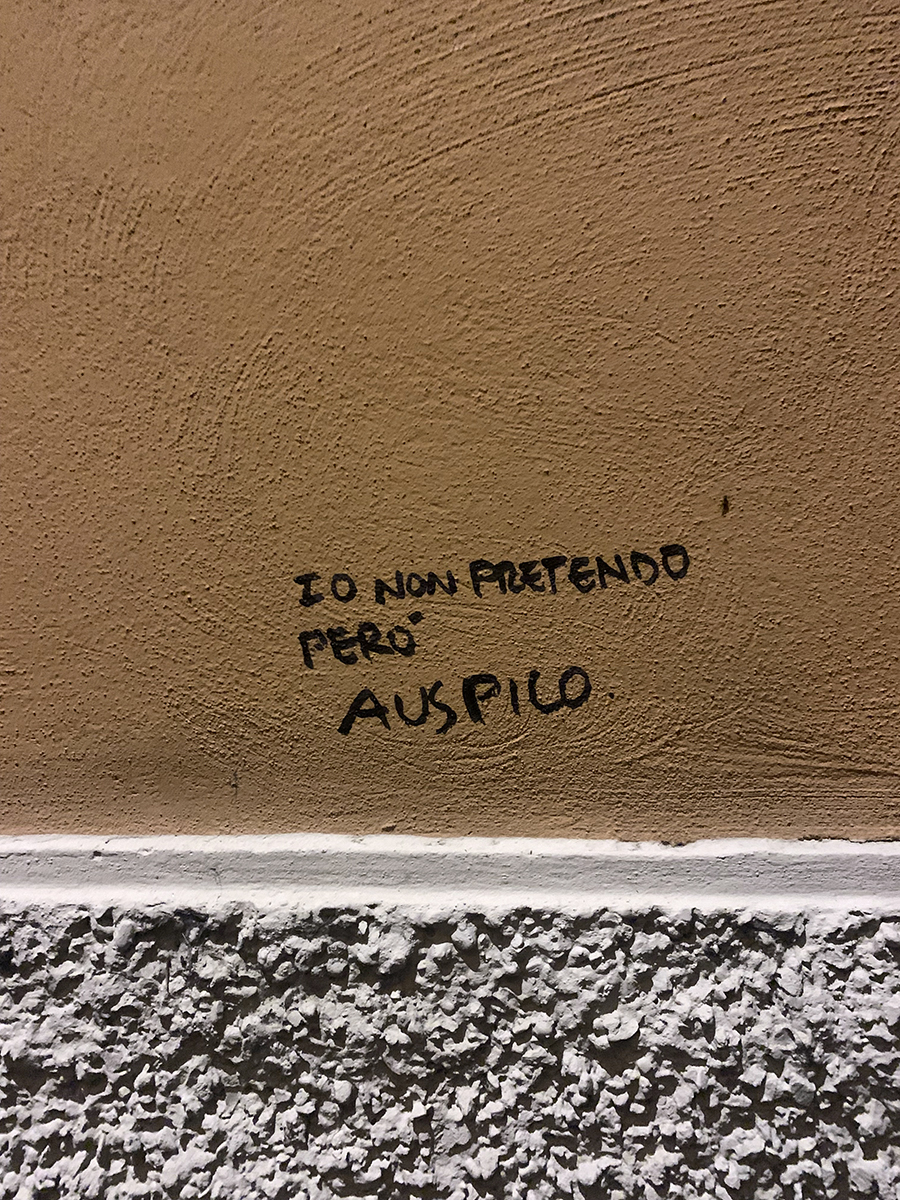 IO NON PRETENDO
PERO'
AUSPICO.